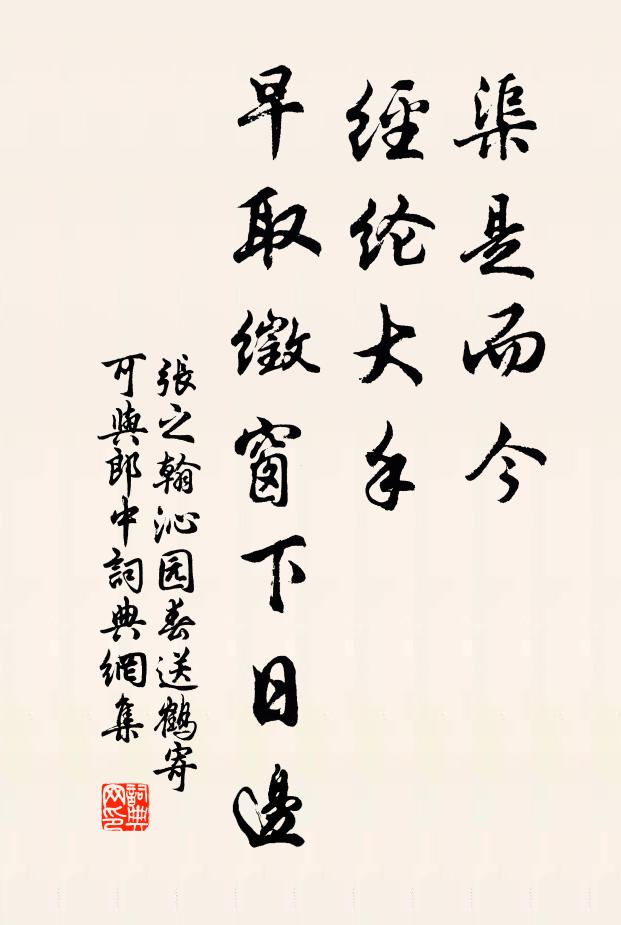 渠是而今
經纶大手
早取徵窗下日邊
張之翰沁园春送鶴寄
可與郎中詞典網集
詞典
网印